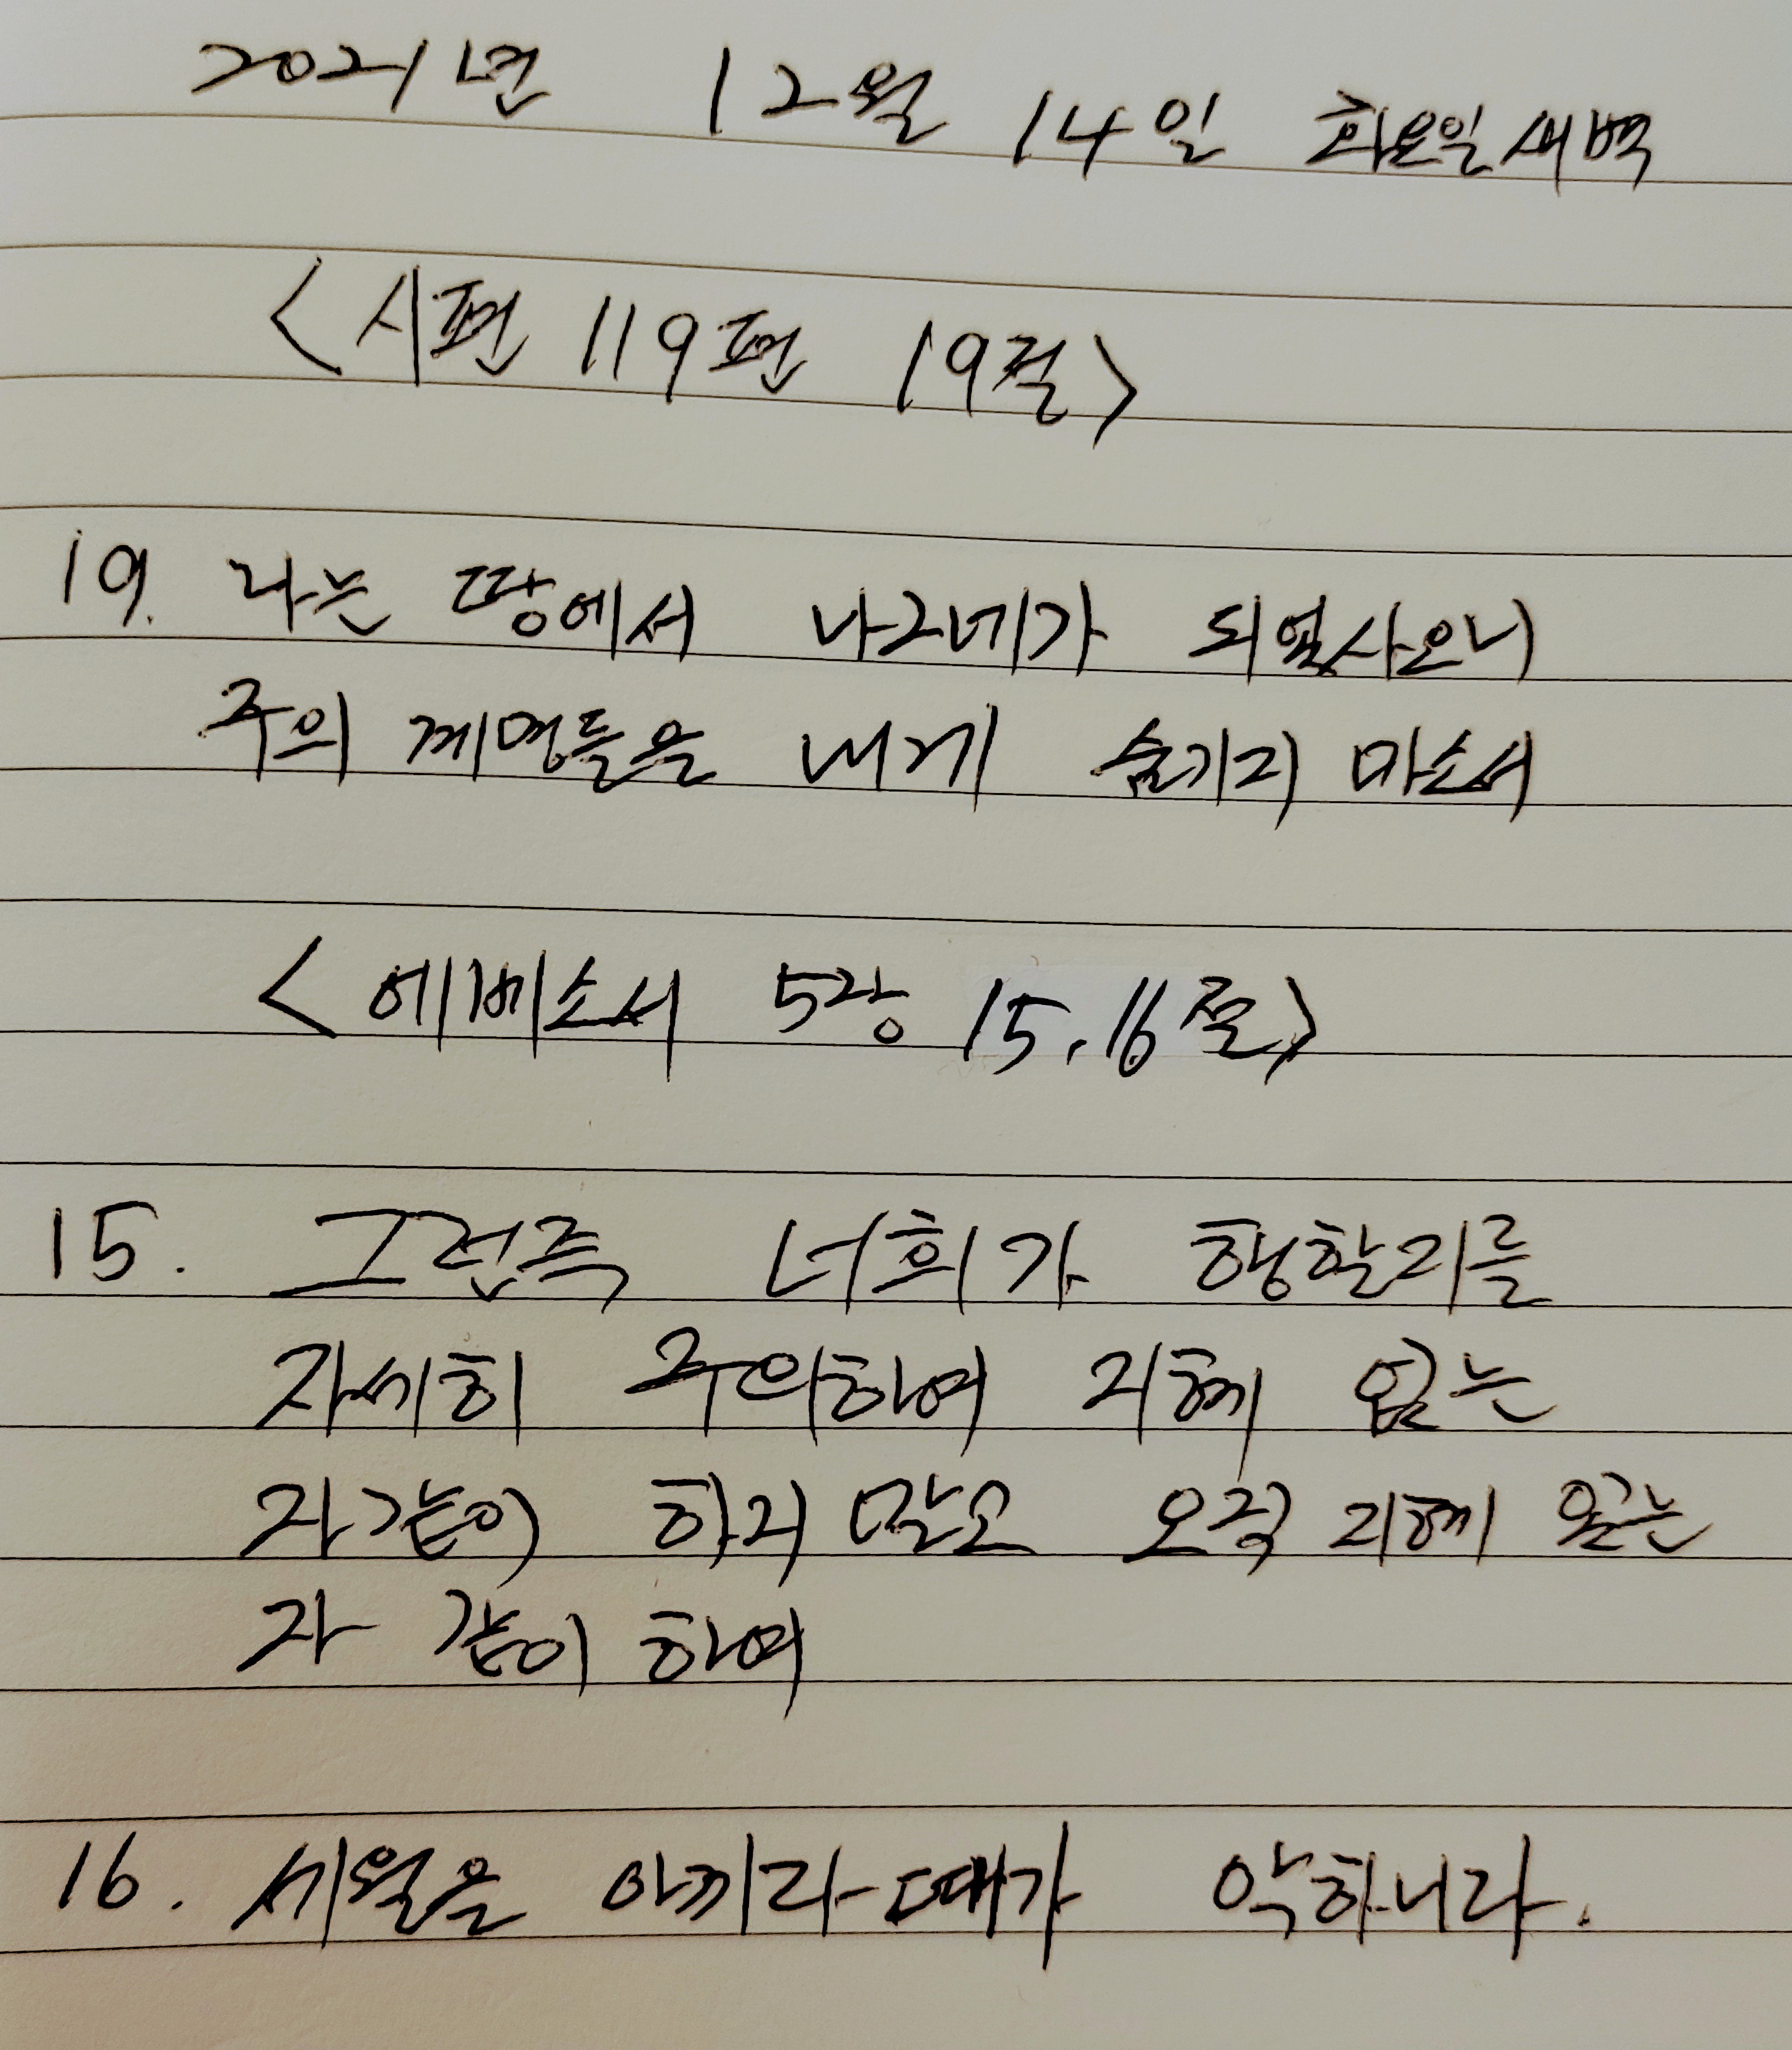 2021년 12월 14일 화요일새벽
<시편 119편 19절>
19. 나는 땅에서 나그네가 되었사오니
주의 계명들을 내게 숨기지 마소서
<에베소서 5장 15,16절>
15. 그런즉 너희가 행할지를
자세히 주의하여 지혜 없는
자같이 하지 말고 오직 지혜 있는
자 같이 하여
16. 세월을 아끼라 때가 악하니라.